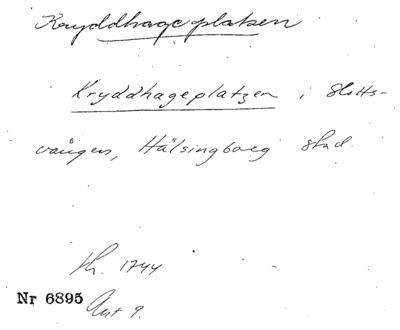 Kryddhageplatsen
Kryddhageplatzen i Slotts-
vången, Hälsingborg stad
Kh. 1744
Nr 6895 Ant 9.